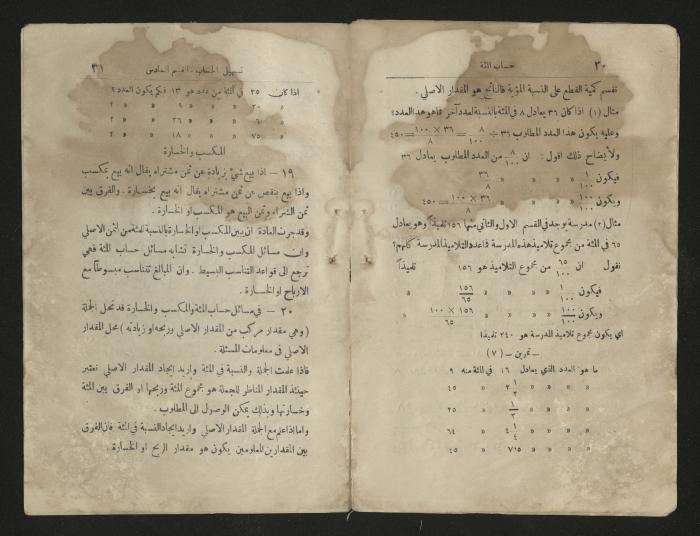 ٣٠
حساب المئة
تقسم كمية القطع على النسبة المئوية فالناتج هو المقدار الاصلي .
مثال (١) اذا كان ٣٦ يعادل ٨ في المئة بالنسبة لعدد آخر فما هو هذا العدد؟
وعليه يكون هذا العدد المطلوب ٣٦ ÷ ٨/١٠٠ = ٣٦ × ١٠٠/٨ = ٤٥٠
ولايضاح ذلك اقول : ان ٨/١٠٠ من العدد المطلوب يعادل ٣٦
فيكون ١/١٠٠ » » » ٣٦/٨
ويكون ١٠٠/١٠٠ » » » ٣٦ × ١٠٠/٨ = ٤٥٠
مثال (٢) مدرسة يوجد في القسم الاول والثاني منها ١٥٦ تلميذاً وهو يعادل
٦٥ في المئة من مجموع تلاميذ هذه المدرسة فما عدد التلاميذ المدرسة كلهم؟
نقول ان ٦٥/١٠٠ من مجموع التلاميذ هو ١٥٦ تلميذاً
فيكون ١/١٠٠ » » » » ١٥٦/٦٥ »
ويكون ١٠٠/١٠٠ » » » » ١٥٦ × ١٠٠/٦٥ »
اي يكون مجموع تلاميذ المدرسة هو ٢٤٠ تلميذا
ـ تمرين ـ (٧)
ما هو العدد الذي يعادل ١٦ في المئة منه ٩
» » » » » ٢ ١/٢ » » ٤٥
» » » » » ١/٢ » » ٢٥
» » » » » ٤ ١/٤ » » ٦٤
» » » » » ٧٠٥ » » ٤٥
تسهيل الحساب ـ القسم السادس
٣١
اذا كان ٢٥ في المئة من عدد هو ١٣ فكم يكون العدد ؟
» ٢٠ » » » » ٩ » » » ؟
» ٦ » » » » ٢٦ » » » ؟
» ٧٥ » » » » ١٨ » » » ؟
المكسب والخسارة
١٩ — اذا بيع شيء بزيادة عن ثمن مشتراه يقال انه بيع بمكسب
واذا بيع بنقص عن ثمن مشتراه يقال انه بيع بخسارة . والفرق بين
ثمن الشراء وثمن البيع هو المكسب او الخسارة .
وقد جرت العادة ان يبين المكسب او الخسارة بالنسبة للمئة من الثمن الاصلي
وان مسائل المكسب والخسارة تشابه مسائل حساب المئة فهي
ترجع الى قواعد التناسب البسيط . وان المبالغ تتناسب مبسوطاً مع
الارباح او الخسارة .
٢٠ — في مسائل حساب المئة والمكسب والخسارة قد تحل الجملة
( وهي مقدار مركب من المقدار الاصلي وربحه او زيادته ) محل المقدار
الاصلي في معلومات المسئلة .
فاذا علمت الجملة والنسبة في المئة واريد ايجاد المقدار الاصلي نعتبر
حينئذ المقدار المناظر للجملة هو مجموع المئة وربحها او الفرق بين المئة
وخسارتها وبذلك يمكن الوصول الى المطلوب .
واما اذا علم مع الجملة المقدار الاصلي واريد ايجاد النسبة في المئة فان الفرق
بين المقدارين المعلومين يكون هو مقدار الربح او الخسارة .